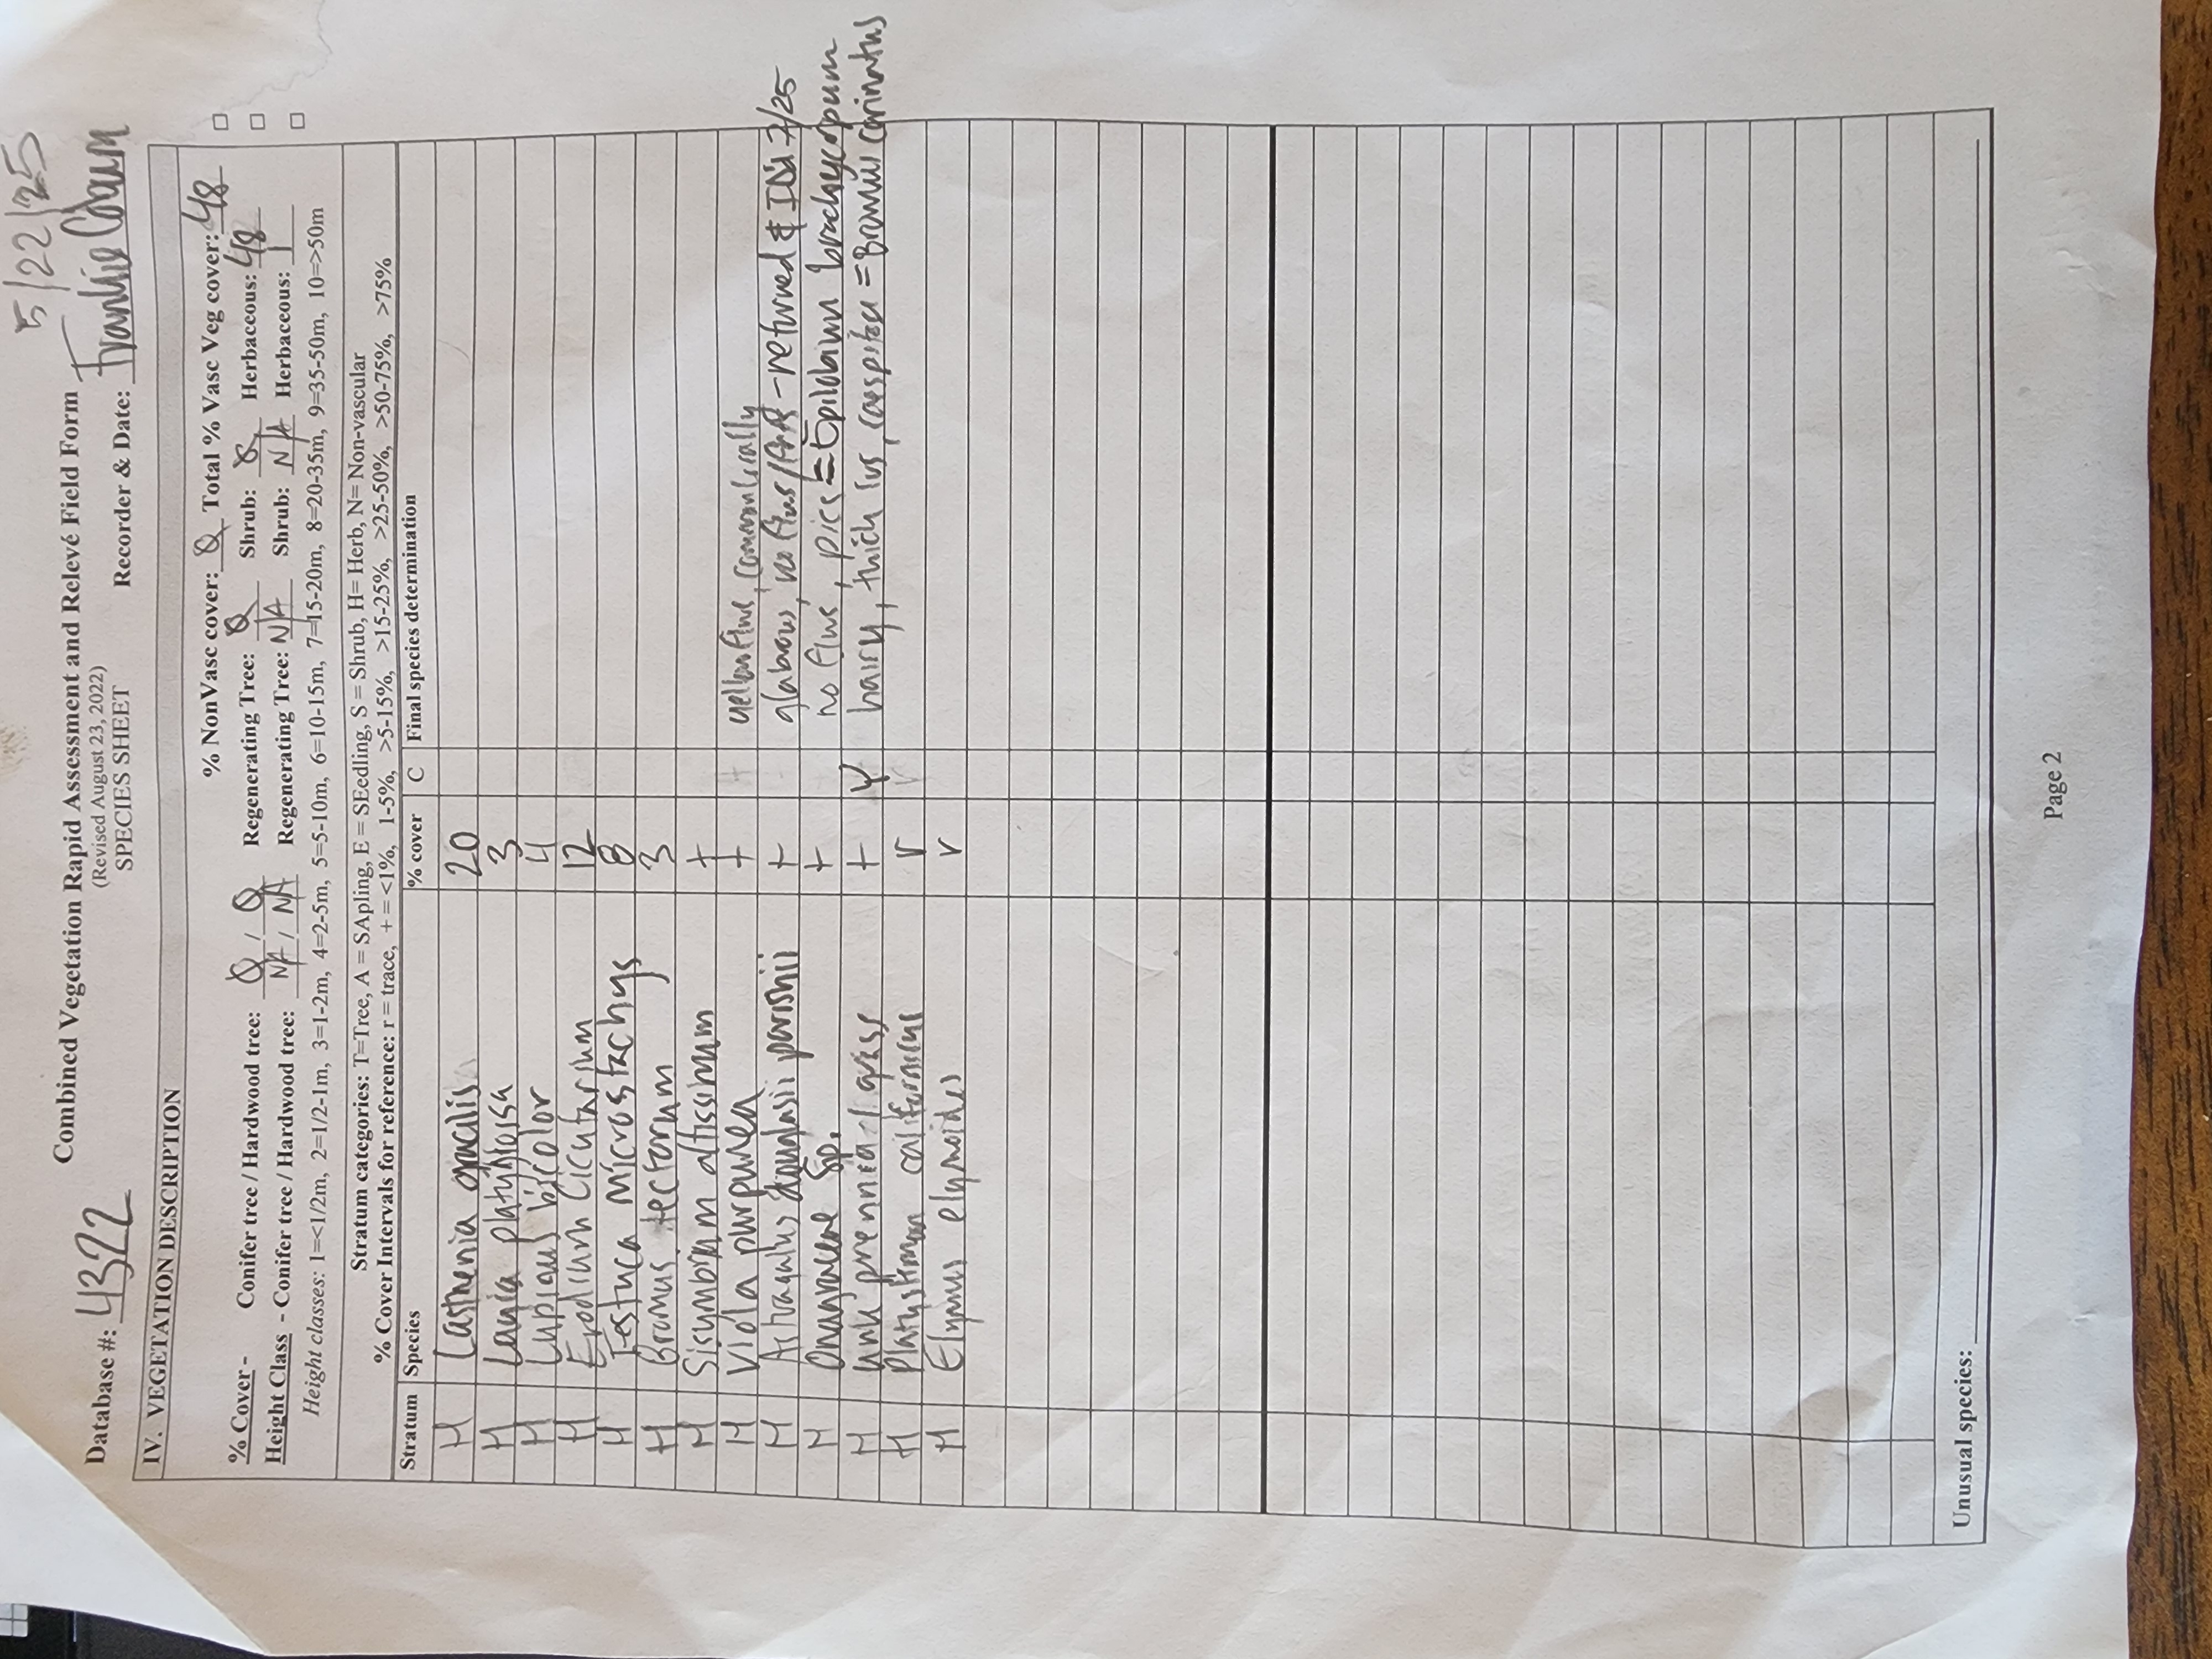 5/22/25
Combined Vegetation Rapid Assessment and Relevé Field Form
(Revised August 23, 2022)
Database #: 4322 SPECIES SHEET Recorder & Date: Frankie
IV. VEGETATION DESCRIPTION
% NonVasc cover: 0 Total % Vasc Veg cover: 48
% Cover - Conifer tree / Hardwood tree: 0 / 0 Regenerating Tree: 0 Shrub: 0 Herbaceous: 48
Height Class - Conifer tree / Hardwood tree: NA / NA Regenerating Tree: N/A Shrub: N/A Herbaceous: 1
Height classes: 1=<1/2m, 2=1/2-1m, 3=1-2m, 4=2-5m, 5=5-10m, 6=10-15m, 7=15-20m, 8=20-35m, 9=35-50m, 10=>50m
Stratum categories: T=Tree, A = SApling, E = SEedling, S = Shrub, H= Herb, N= Non-vascular
% Cover Intervals for reference: r = trace, + = <1%, 1-5%, >5-15%, >15-25%, >25-50%, >50-75%, >75%
Stratum Species % cover C Final species determination
H Lasthenia gracilis 20
H Layia platyglossa 3
H Lupinus bicolor 4
H Erodium cicutarium 12
H Festuca microstachys 8
H Bromus tectorum 3
H Sisymbrium altissimum +
H Viola purpurea + yellow flws,
H Astragalus douglasii parishii + glabrous, no flws/ - returned & IDd 7/25
H Onagraceae sp. + no flws, pics = Epilobium brachycarpum
H unk prennial grass + Y hairy, thick lvs, caespitose = Bromus carinatus
H Platystemon californicus r
H Elymus elymoides r
Unusual species:
Page 2